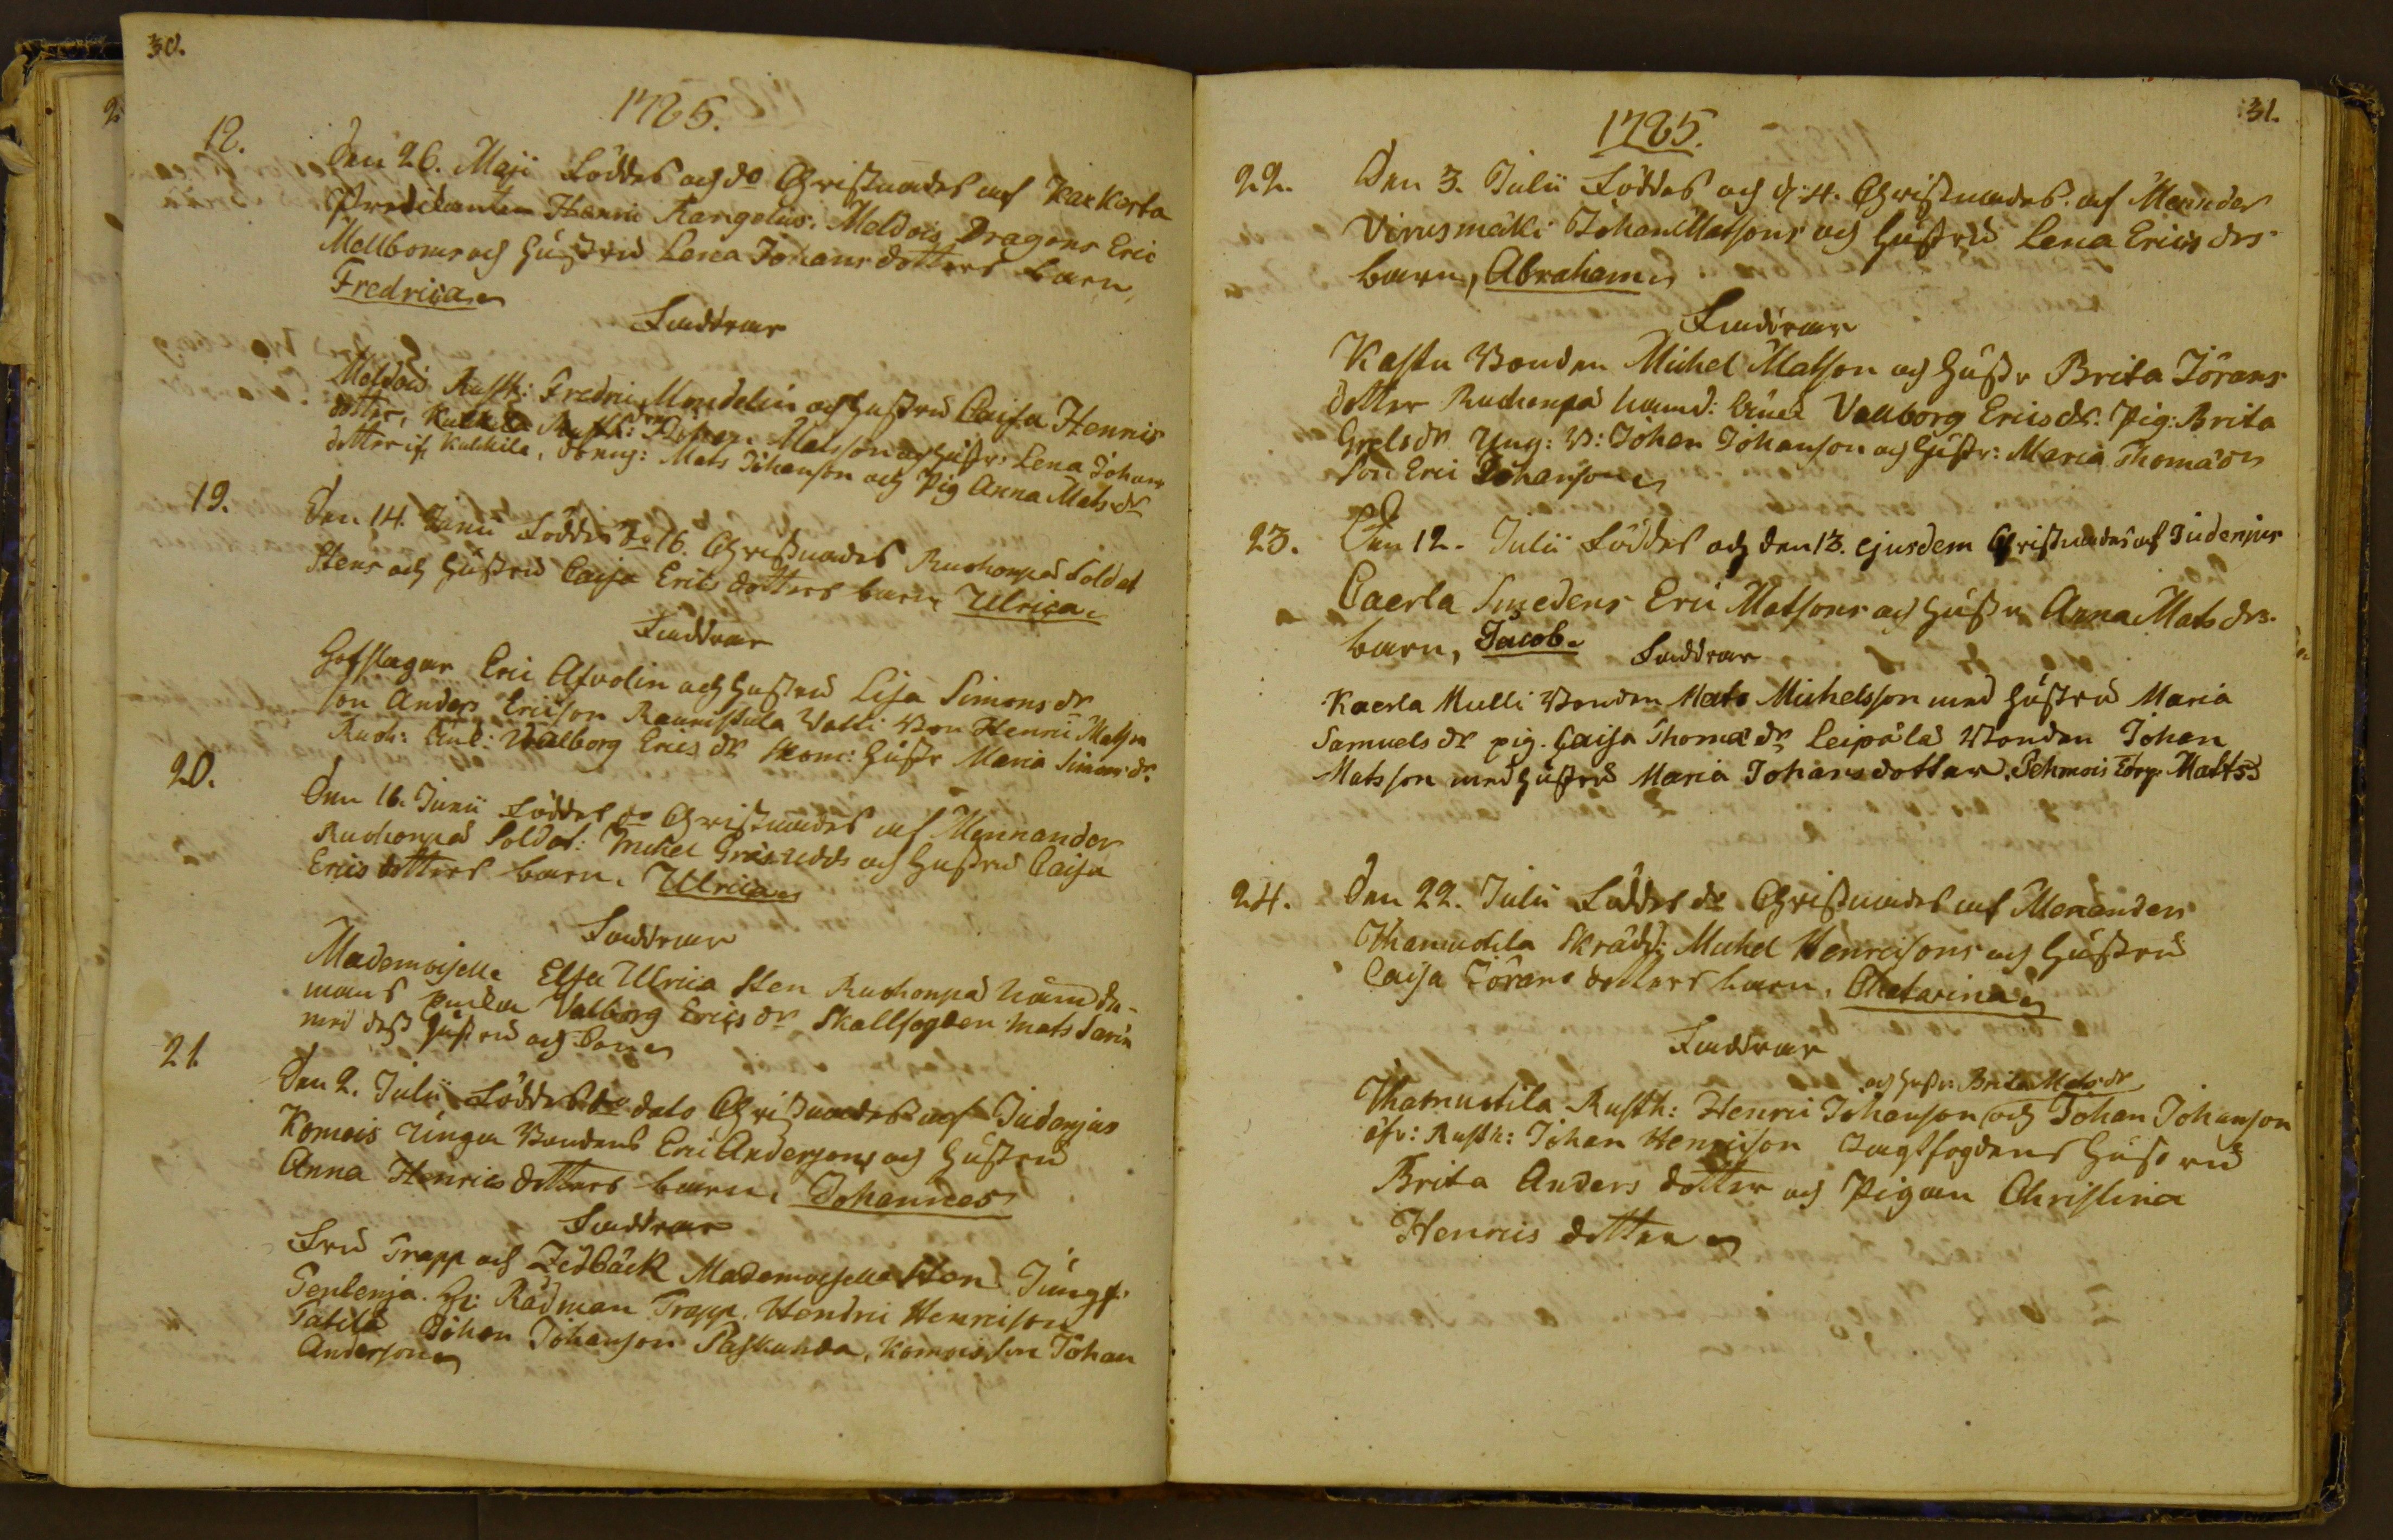 30.
1785.
18. Den 26. Maji Föddes och do Christnades af Karkerta
Predikanten Henric Rangelius. Moldois Dragons Eric
Mellboms och hustru Lena Johans dotters barn,
Fredrica
Faddrar
Moldois Rusth: Fredric Mondelin och hustru Caisa Henrics
dotter, Kulkila Rusth: Matsson och hustr: Lena Johans
dotter if Kulkila, dreng: Mats Johanson och Pig Anna Mats dr
19. Den 14. Junii Föddes do 16. Christnades Ruohonpää Soldat
Stens och hustru Caisa Erics dotters barn Ulrica
Faddrar
Hofslagar Eric Afvolin och hustru Lisa Simons dr
son Anders Ericson Raunistula Vatti Bon Henric Matson
Ruoh: Enk: Walborg Erics dr Skom: hustr Maria Simons dr.
20. Den 16. Junii Föddes do Christnades af Mennander
Ruohonpää Soldat: Mickel Gräsudds och hustru Caisa
Erics dotters barn. Ulrica
Faddrar
Mademoiselle Elsa Ulrica Sten Ruohonpää Nämde-
mans Enkan Valborg Erics dr Skallfogden Mats Sarin
med dess hustru och Son
21. Den 2. Julii Föddes do dato Christnades af Judenjus
Komois unga Bondens Eric Andersons och hustru
Anna Henrics dotters barn. Johannes
Faddrar
Fru Trapp och Zedbäck Mademoiselle Sten Jungf:
Hr: Rådman Trapp. Hendric Henricson
Johan Johanson Paskunda, Komois Son Johan
Anderson
31.
1785.
22. Den 3. Julii Föddes och d: 4. Christnades af Menander
Virusmäki Johan Matsons och hustru Lena Erics drs
barn, Abraham
Faddrar
Kastu Bonden Michel Matson och hustr Brita Jörans
dotter Ruohonpä Namd: Enka Vallborg Erics dr. Pig: Brita
Grels dr Ung: B: Johan Johanson och hustr: Maria Thomä dr
Son Eric Johanson
23. Den 12. Julii Föddes och den 13. ejusdem Christnades af Judenjus
Caerla Smedens Eric Matsons och hustr Anna Mats drs.
barn, Jacob. Faddrar
Kaerla Mulli Bonden Mats Michelsson med hustru Maria
Samuels dr pig. Caisa Thomä dr Leipälä Bonden Johan
Matsson med hustru Maria Johans dotter. Sehmois Torp: Matts
24. Den 22. Julii Föddes do Christnades af Menander
Thamustila Skrädd: Michel Henricsons och hustru
Caisa Jörans dotters barn. Chatarina
Faddrar
och hustr: Brita Mats dr
Thamustila Rusth: Henric Johanson och Johan Johanson
öfv: Rusth: Johan Henricson Jagtfogdens hustru
Brita Anders dotter och Pigan Christina
Henrics dotter